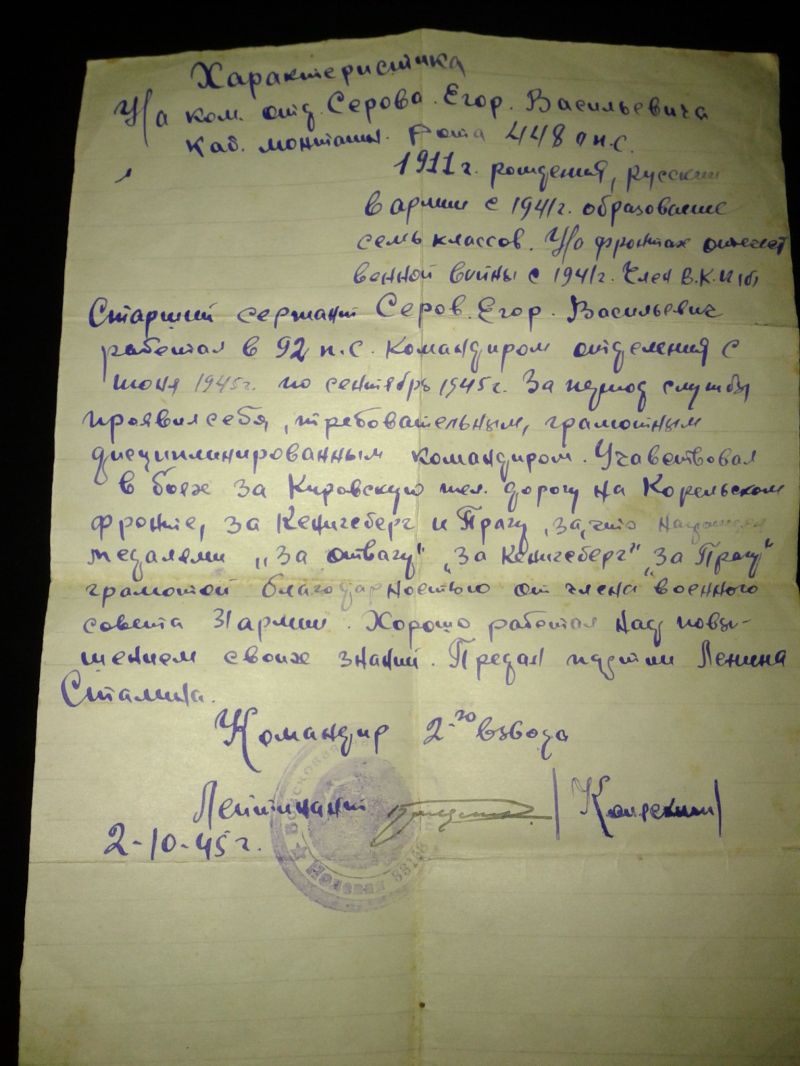 Характеристика
На ком. отд. Серова. Егор. Васильевича
Каб. монташн. Рота 448 п.с.
1911 г. рождения, русский
в армии с 1941г. образование
семь классов. На фронтах отечест
венной войны с 1941г. Член В.К.П(б)
Старший сержант Серов. Егор. Васильевич
работал в 92 п.с. командиром отделения с
июня 1945г. по сентябрь 1945г. За период службы
проявил себя, требовательным, грамотным
дисциплинированным командиром. Учавствовал
в боях за Кировскую жел. дорогу на Корельском
фронте, за Кенигсберг и Прагу, за, что награжден
медалями „За отвагу" „За Кенигсберг" „За Прагу"
грамотой благодарностью от члена военного
совета 31 армии. Хорошо работал над повы-
шением своих знаний. Предан партии Ленина
Сталина.
Командир 2-го взвода
Лейтинант
2-10-45 г.
Полевая